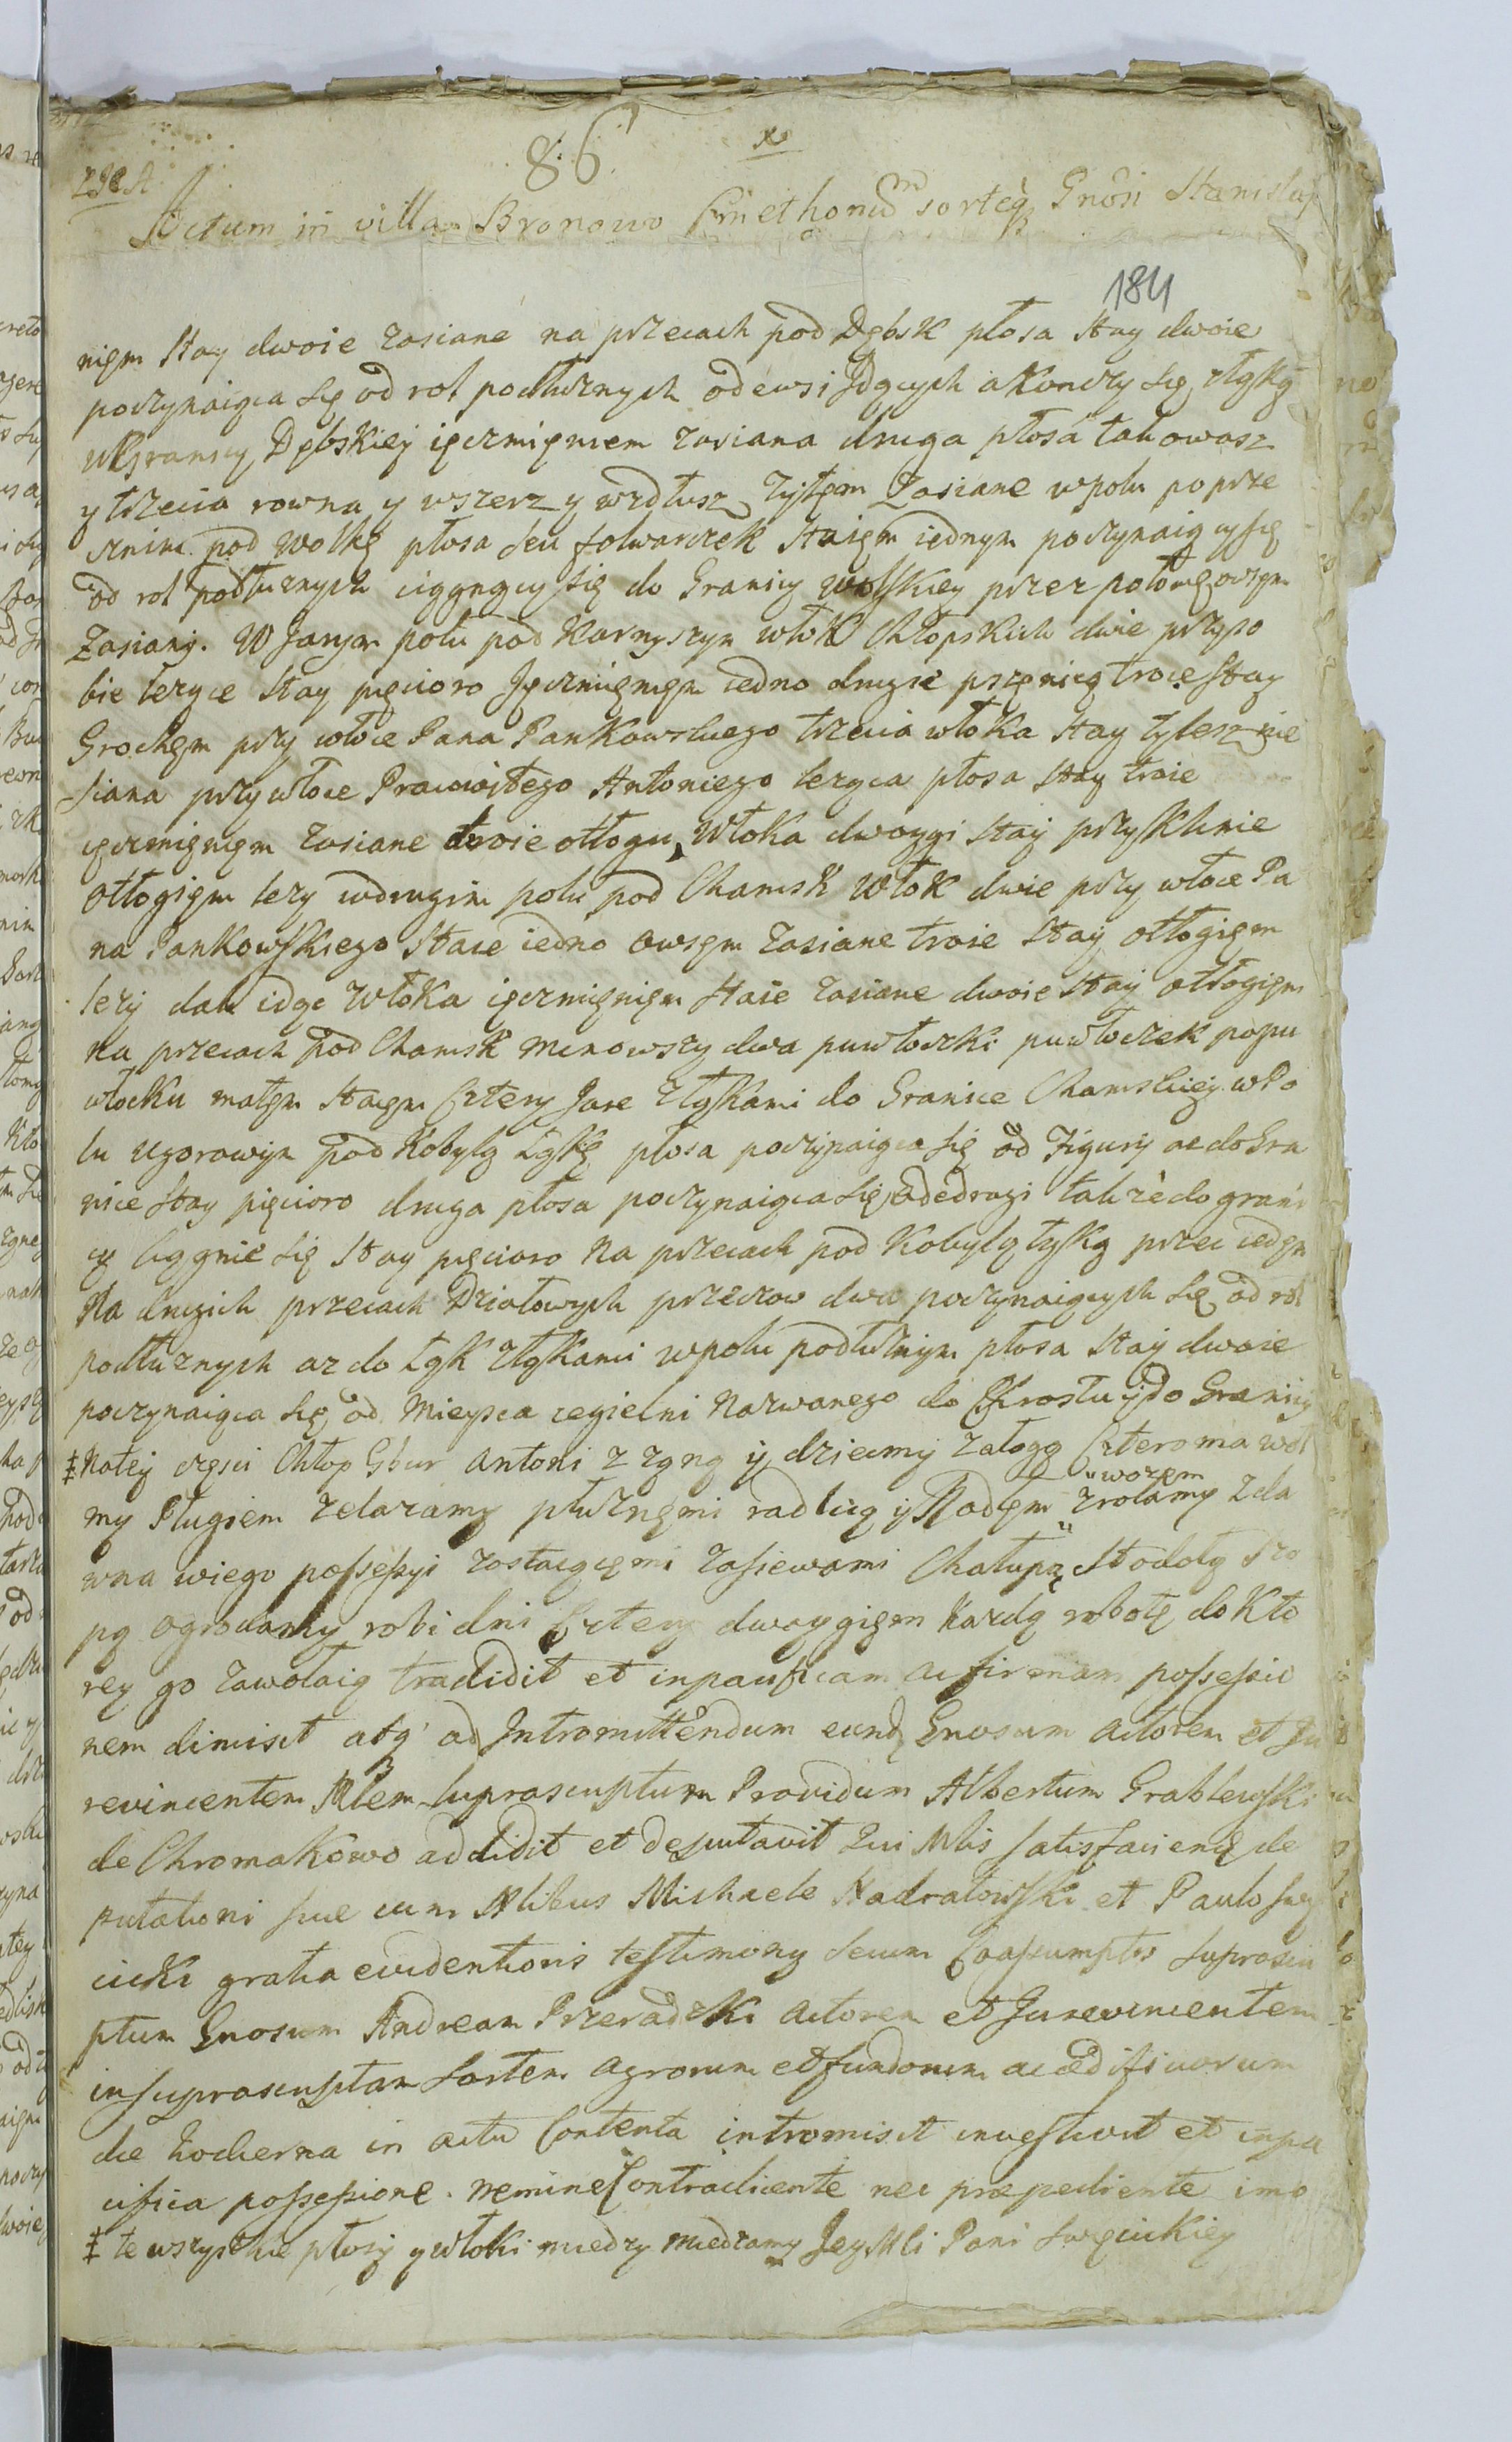 86
Actum in villa Bronowo Cmethonũ sorteq3 Gnosi Stanislai
184
nięm Stay dwoie zasiane na przecach pod Dębsk płosa Stay dwoie
poczynaiąca się od rol podłuznych odewsi Idących a Konczy się z łąką
w Granicy Dębskiey ięczmięniem zasiana druga płosa takowasz
y trzecia rowna y wszerz y wzdłusz Zytęm Zasiane w polu poprze
cznim pod Wolkę płosa seu folwarczek Staięm iednym poczynaiący się
od rol podłuznych ciągnący się do Granicy Wolskiey przez połowę owsęm
Zasiany. W Jarym polu pod Karnyszyn włok Chłopskich dwie przy so
bie lezące Stay pięcioro Jęczmięnięm iedno drugie przęnicą troie Stay
Grochęm przy włoce Pana Pankowskiego trzecia włoka Stay tylesz nie
siana przy włoce Pracowitego Antoniego lezyca płosa Stay troie
ięczmięnięm zasiane dwoie otłogu, Włoka dwoygi Stay przy Klinie
otłogięm lezy w drugim polu pod Chamsk Włok dwie przy włoce Pa
na Pankowskiego Staie iedno owsęm zasiane troie Stay otłogięm
lezy dali idąc Włoka ięczmięnięm Staie zasiane dwoie Stay otłogięm
Na przecach pod Chamsk minowszy dwa puwłoczki puwłoczek popu
włocku małęm Staięm Cztery Jare z łąkami do Granice Chamskiey w Po
lu Ugorowym pod Kobylą Łąkę płosa poczynaiąca się od Figury az do Gra
nice Stay pięcioro druga płosa poczynaiąca się od drogi takze do grani
cy ciągnie się Stay pięcioro Na przecach pod Kobylą łąką przec iedęn
Na drugich przecach Działowych przeczow dwa poczynaiących się od rol
podłuznych az do Łąk z łąkami w polu podłuznym płosa Stay dwoie
poczynaiąca się od Mieysca cegielni Nazwanego do Chrostu y do Granicy
‡ Na tey częsci Chłop Gbur Antoni z zoną y dziecmy załogą Czteroma woł
my Pługiem zelazamy płuznęmi radlicą y Radłęm wozęm z rolamy z da
wna w iego possessyi zostaiącęmi zasiewami Chałupą Stodołą Szo
pą ogrodamy robi dni Cztery dwoygięm Kazdą robotę do Kto
rey go zawołaią tradidit et in pacificam ac firmam possessio
nem dimisit atq3 ad Intromittendum eund Gnosum Actorem et Ju
revincentem Mlem suprascriptum Providum Albertum Grablewski
de Chromakowo addidit et deputavit Qui Mlis satisfaciend de
putationi suae cum Mlibus Michaele Nadratowski et Paulo Swię
cicki gratia evidentioris testimony secum Coassumptis suprascri
ptum Gnosum Andream Przeradzki Actorem et Jurevincentem
in suprascriptam Sortem Agrorum et fundorum ac ædificiorum
die hodierna in actu Contenta intromisit investivit et in pa
cifica possessione. nemine Contradicente nec præpediente imo
‡ te wszystkie płosy y włoki miedzy miedzamy Jey Mli Pani Swięcickiey